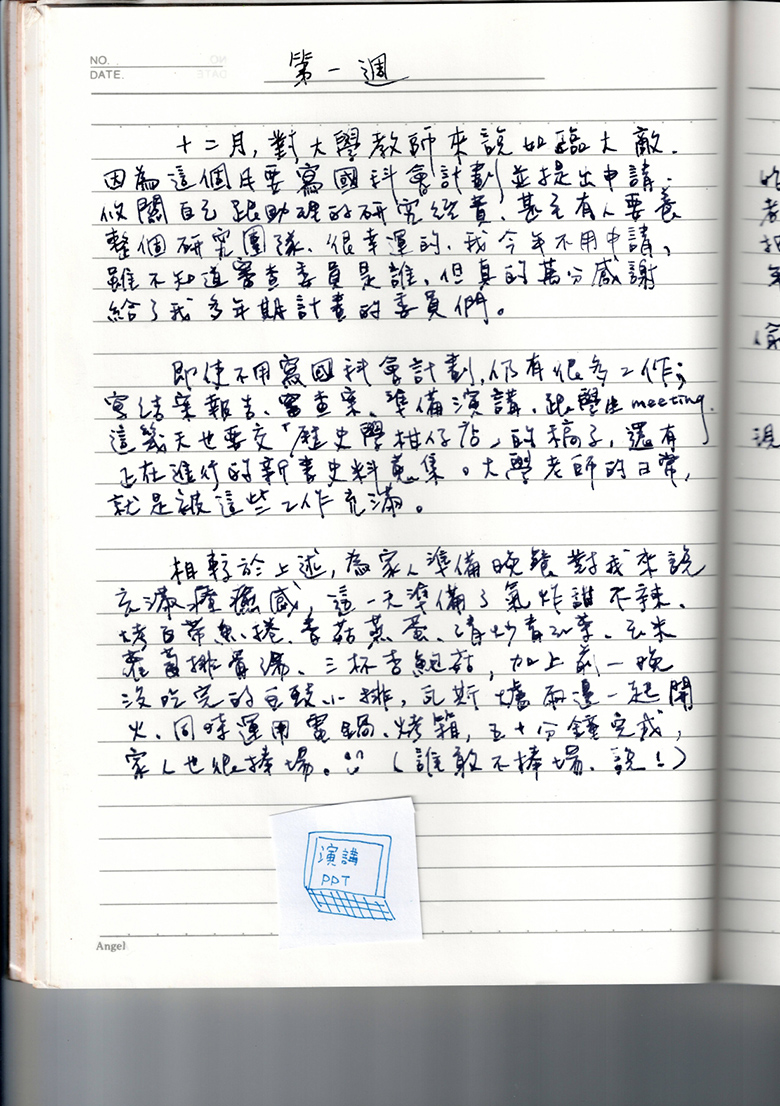 NO.
DATE.
第一週
十二月，對大學教師來說如臨大敵．
因為這個月要寫國科會計劃並提出申請．
攸關自己跟助理的研究經費、甚至有人要養
整個研究團隊、很幸運的、我今年不用申請，
雖不知道審查委員是誰，但真的萬分感謝
給了我多年期計畫的委員們。
即使不用寫國科會計劃，仍有很多工作；
寫結案報告、審查案、準備演講、跟學生meeting.
這幾天也要交「歷史學柑仔店」的稿子，還有
正在進行的新書史料蒐集。大學老師的日常，
就是被這些工作充滿。
相較於上述，為家人準備晚餐對我來說
充滿療癒感，這一天準備了氣炸甜不辣、
烤白帶魚捲、香菇蒸蛋、清炒青江菜、玉米
排骨湯、三杯杏鮑菇，加上前一晚
沒吃完的豆豉小排，瓦斯爐兩邊一起開
火、同時運用電鍋、烤箱，五十分鐘完成，
家人也很捧場。（誰敢不捧場、說！）
演講
PPT
Angel